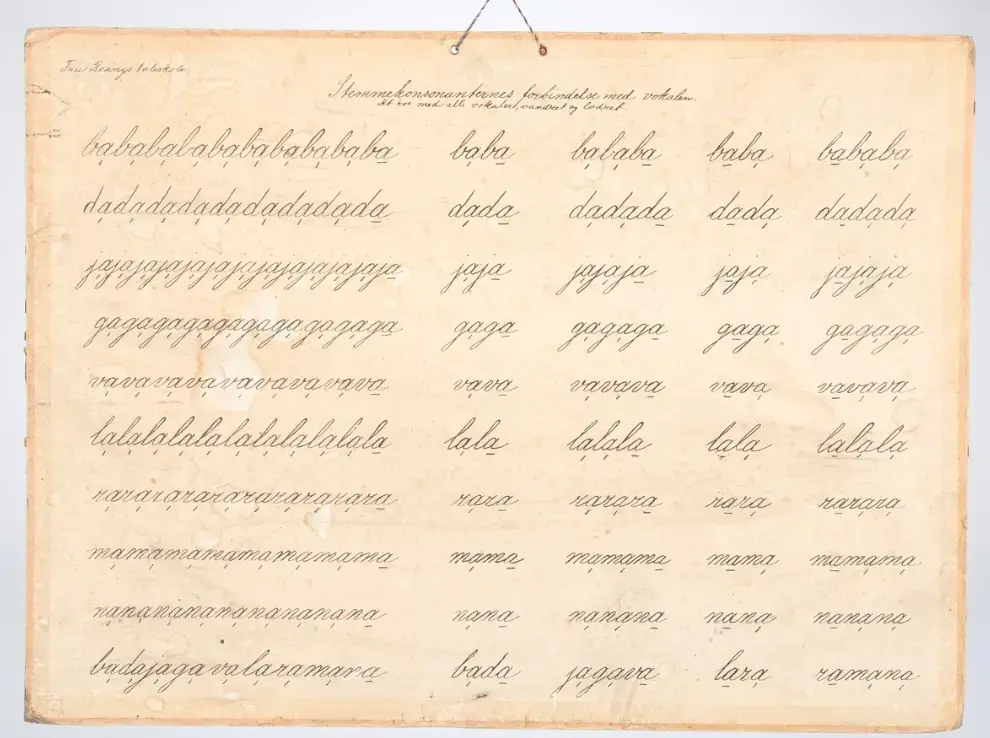 Fru Rosings taleskole
Stemmekonsonanternes forbindelse med vokalen.
At øve med alle vokaler, vandret og lodret.
babababababababababa baba bababa baba bababa
dadadadadadadadadada dada dadada dada dadada
jajajajajajajajajajaja jaja jajaja jaja jajaja
gagagagagagagagagaga gaga gagaga gaga gagaga
vavavavavavavavavava vava vavava vava vavava
lalalalalalalalalalala lala lalala lala lalala
rararararararararara rara rarara rara rarara
mamamamamamamamama mama mamama mama mamama
nananananananananana nana nanana nana nanana
badajagavalaramana bada jagava lara ramana